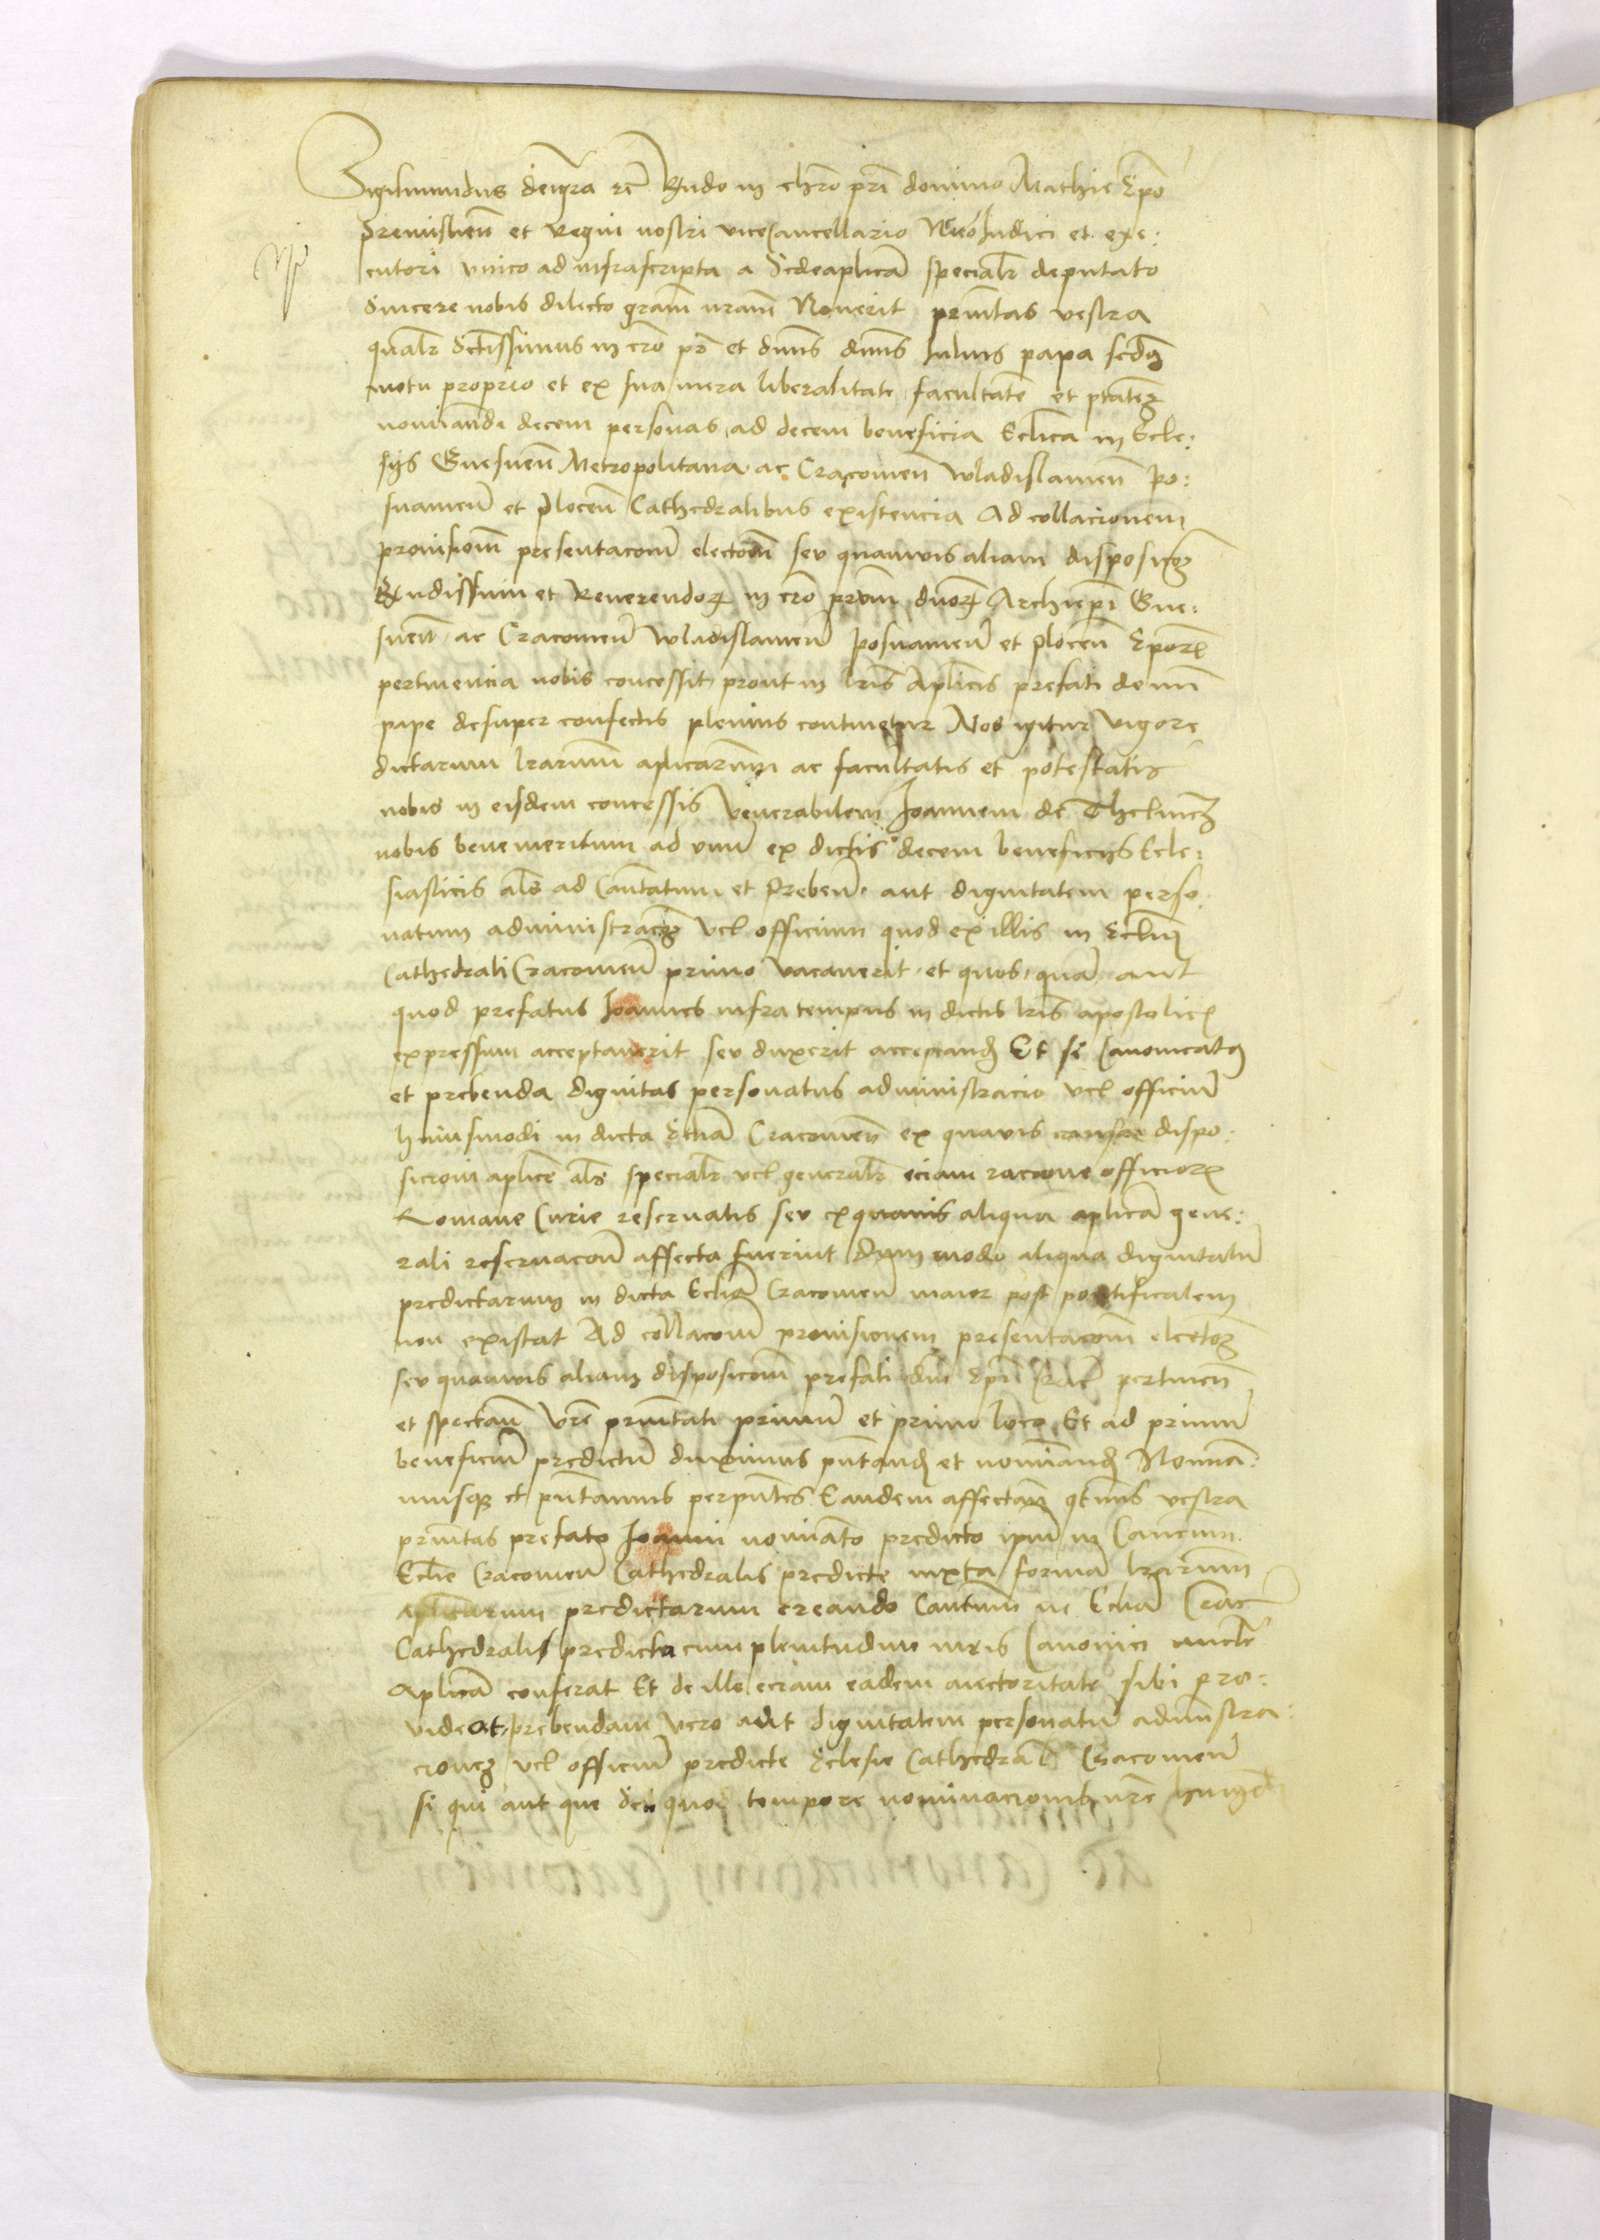 Sigismundus deigra etc Rndo in chro pri domino Mathie Epo
Premislien et Regni nostri viceCancellario Judici et exe:
cutori unico ad infrascripta a Sedeaplica specialr deputato
Sincere nobis dilecto gram nram Noverit prnitas vestra
qualr Sctissimus in cro pr et dnns dnns Julius papa scdus
motu proprio et ex sua mera liberalitate facultate et ptatem
nominandi decem personas ad decem beneficia Eclica in Ecle:
sijs Gnesnen Metropolitana ac Cracovien Wladislavien Po:
snanien et Plocen Cathedralibus existencia Ad collacionem
provisionem presentacom electom seu quamvis aliam disposicom
Rndissimi et Reverendor in cro prum dnor Archiepi Gne:
snen ac Cracovien Wladislavien Posnanien et Plocen Epor
pertinencia nobis concessit prout in lris Aplicis prefati domini
pape desuper confectis plenius continetur Nos igitur vigore
dictarum lrarum aplicarum ac facultatis et potestatis
nobis in eisdem concessis Venerabilem Joannem de
nobis benemeritum ad unu ex dictis decem beneficijs Ecle:
siasticis als ad Canctatum et Preben aut dignitatem perso
natum administracom vel officium quod ex illis in Eclia
Cathedrali Cracovien primo vacaverit et quos quam aut
quod prefatus Joannes infra tempus in dictis lris apostolicis
expressum acceptaverit seu duxerit acceptand Et si Canonicatus
et prebenda dignitas personatus administracio vel officium
huiusmodi in dicta Eclia Cracovien ex quavis causa dispo:
sicioni aplice als specialr vel generalr eciam racione officior
Romane Curie reservatis seu exquavis aliqua aplica gene:
rali reservacom affecta fuerint Dummodo aliqua dignitatum
predictarum in dicta Eclia Cracovien maior post pontificalem
non existat Ad collacom provisionem presentacom electom
seu quamvis aliam disposicom prefati dni Epi Crac pertinen
et spectan Vre prnitati primum et primo loco Et ad primum
beneficium predictum duximus pntand et nominand Nomina:
musque et pntamus perpntes Eandem affectan qtenus vestra
prnitas prefato Joanni nominato predicto ipum in Canonicum
Eclie Cracovien Cathedralis predicte iuxta forma lrarum
aplicarum predictarum creando Canctum ne Eclia Crac
Cathedralis predicta cum plenitudine iuris Canonici aucte
Aplica conferat Et de illo eciam eadem auctoritate sibi pro:
videat prebendam vero aut dignitatem personatu administra:
cionem vel officium predicte Eclesie Cathedral Cracovien
si qui aut que seu quod tempore nominacionis nre